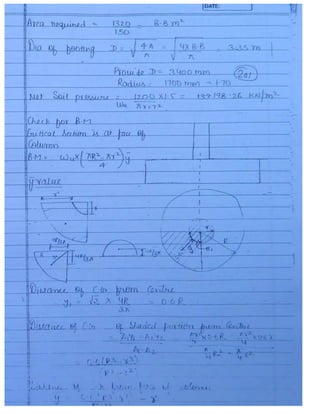 DATE:
Area required = 1320/150 = 8.8 m²
Dia of footing D = √(4A/π) = √(4×8.8/π) = 3.35 m
Provide D = 3400 mm
Radius = 1700 mm = 1.70
Net Soil pressure = 1200×1.5/π×1.7² = KN/m²
Wu
Check for B.M
Critical section is at face of
Column
B.M = wu×(πR²-πr²/4)ȳ
ȳ value
Distance of C.G from centre
y₁ = √2 × 4R/3π = 0.6R
Distance of C.G of shaded portion from centre
= A₁y₁ - A₂y₂/A₁-A₂ = πR²/4×0.6R - πr²/4×0.6r/πR²/4 - πr²/4
= 0.6(R³-r³)/(R²-r²)
Distance of from face of column
ȳ = 0.6(R³-r³) - r